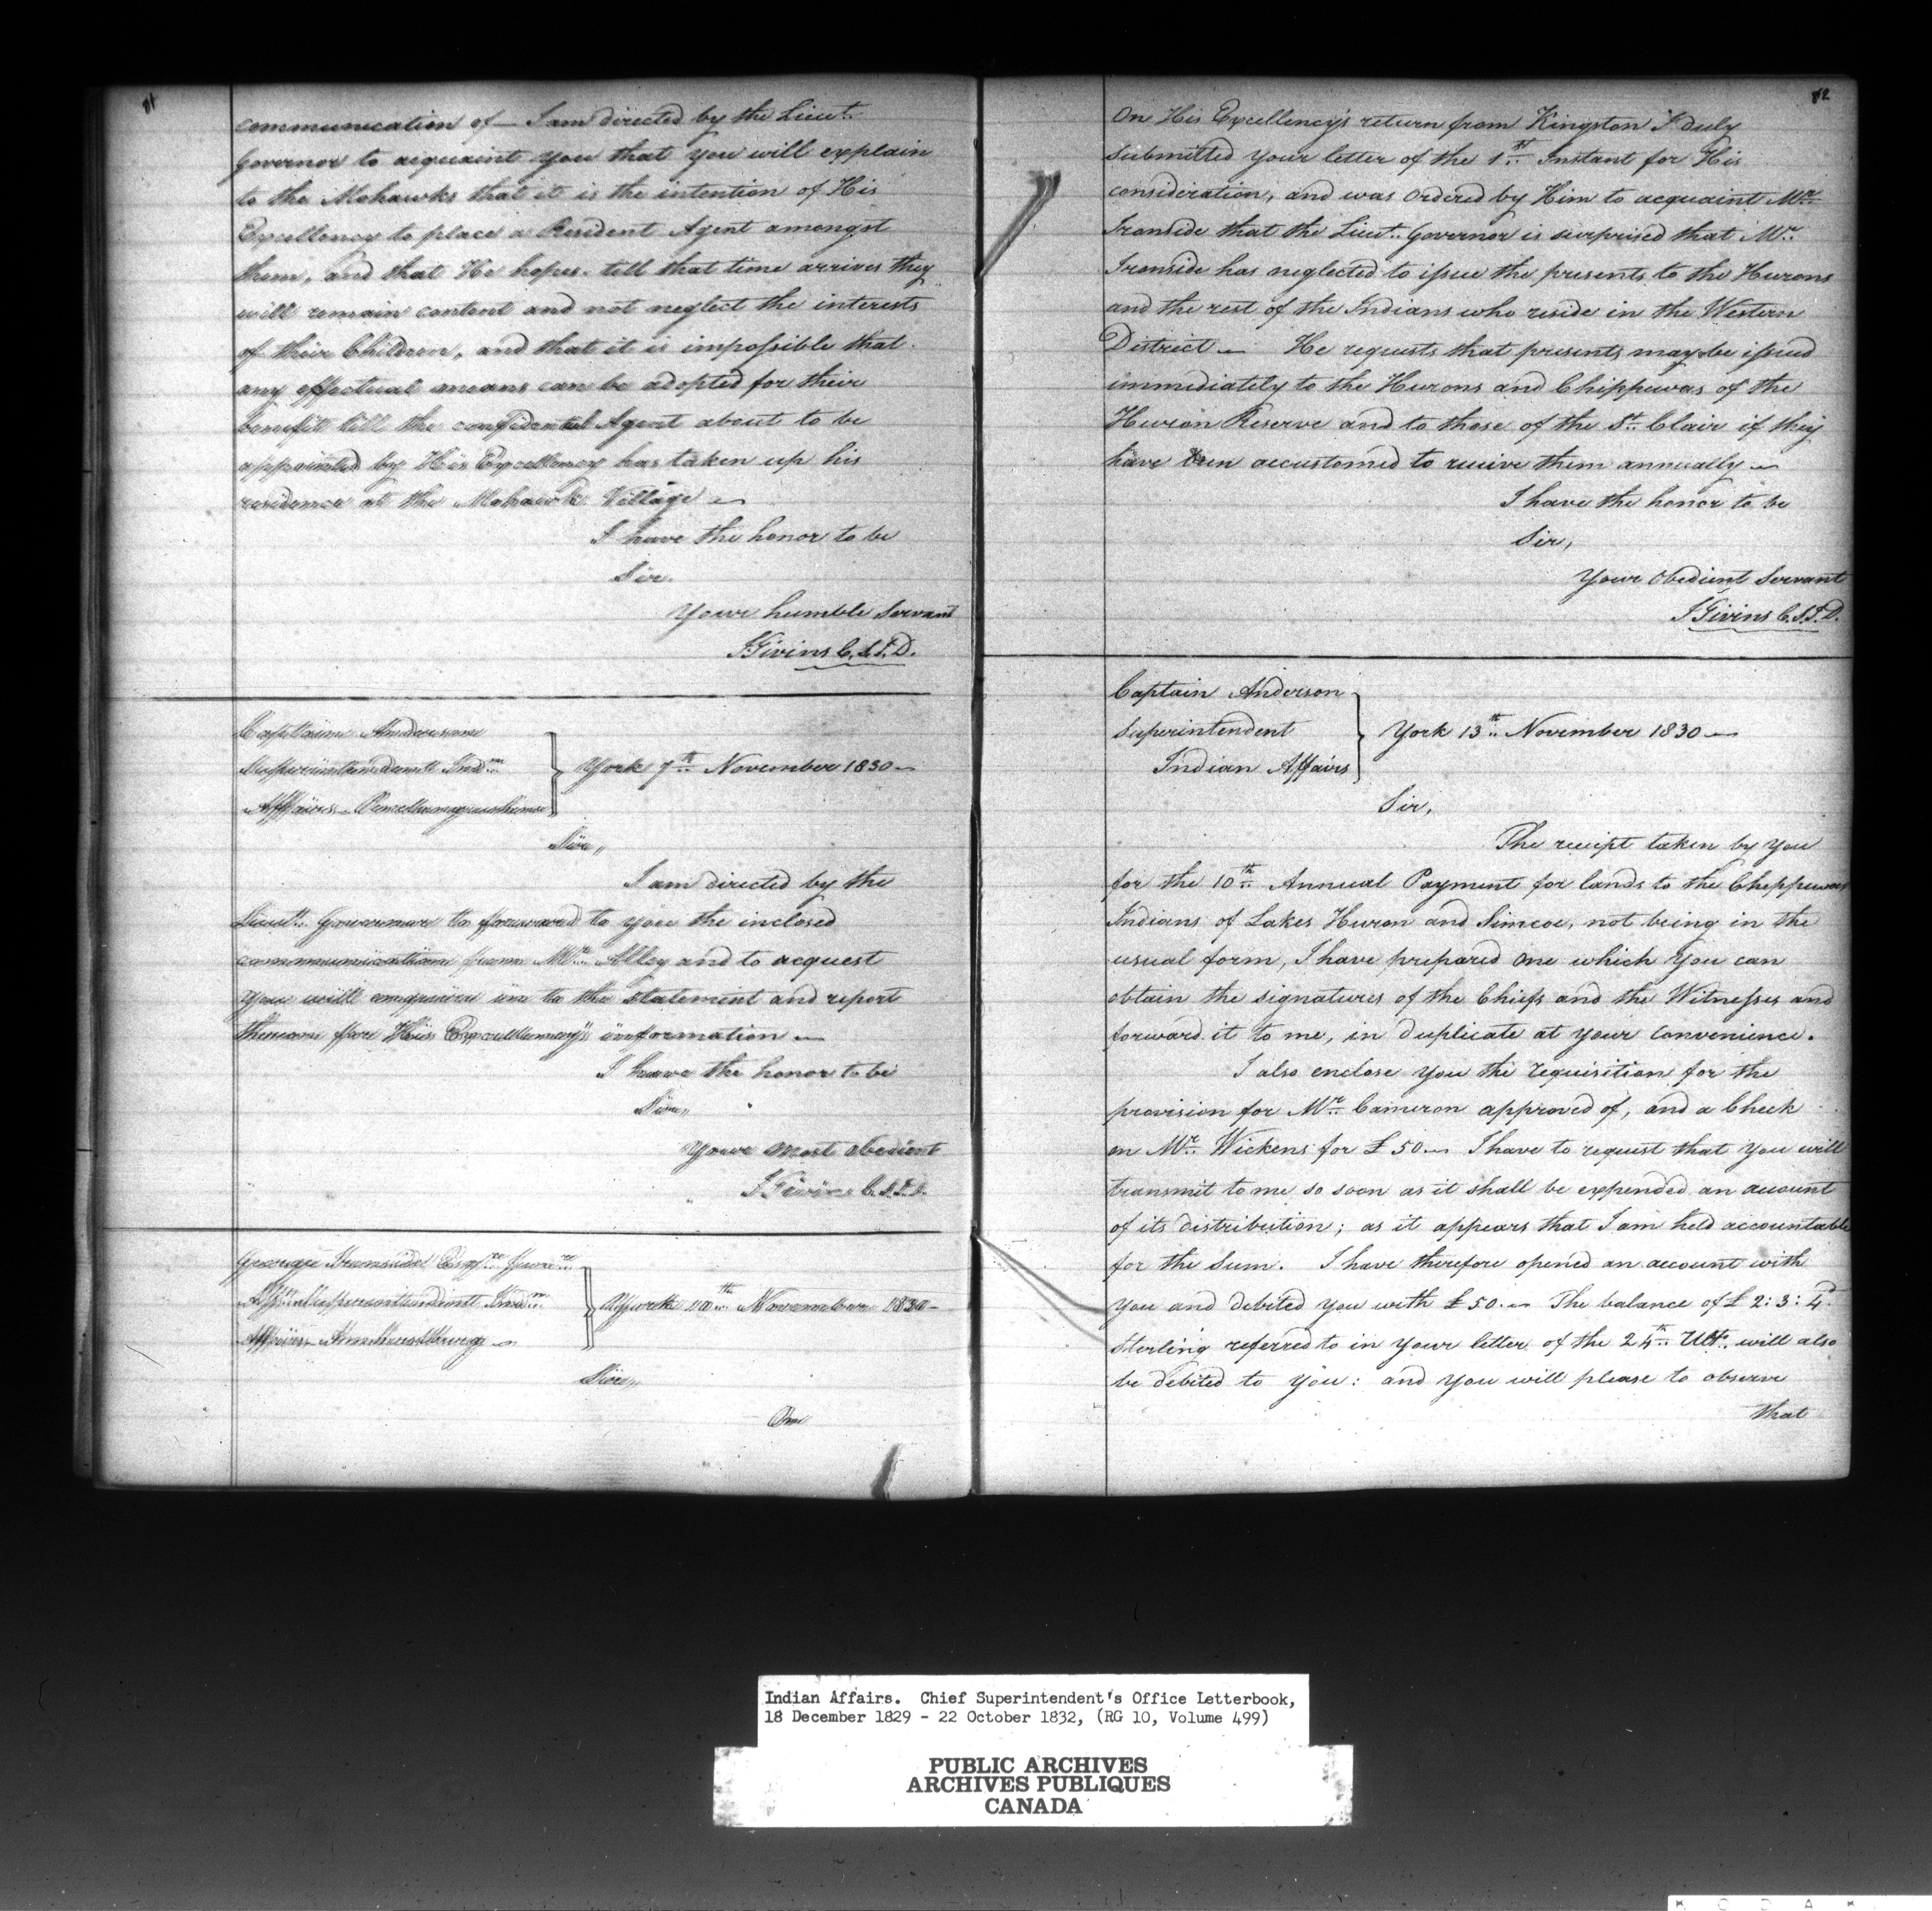 81
communication of — I am directed by the Lieut.
Governor to acquaint you that you will explain
to the Mohawks that it is the intention of His
Excellency to place a Resident Agent amongst
them, and that He hopes till that time arrives they
will remain content and not neglect the interests
of their Children, and that it is impossible that
any effectual means can be adopted for their
benefit till the confidential Agent about to be
appointed by His Excellency has taken up his
residence at the Mohawk Village —
I have the honor to be
Sir.
Your humble Servant
J Givins C.S.I.D.
Captain Anderson
Superintendent Indn
Affairs Penetanguishine
York 7th November 1830 —
Sir,,
I am directed by the
Lieut. Governor to forward to you the inclosed
communication from Mr. Alley and to acquest
you will enquire in to the statement and report
thereon for His Excellency's information —
I have the honor to be
Sir,,
Your most obedient
J Givins C.S.I.D.
George Ironside Esqre
Superintendent Indn
Affairs Amherstburg —
York 10th November 1830 —
Sir,,
On
82
On His Excellency's return from Kingston I duly
submitted your letter of the 1st Instant for His
consideration, and was Ordered by Him to acquaint Mr.
Ironside that the Lieut. Governor is surprised that Mr.
Ironside has neglected to issue the presents to the Hurons
and the rest of the Indians who reside in the Western
District — He requests that presents may be issued
immediately to the Hurons and Chippewas of the
Huron Reserve and to those of the St. Clair if they
have been accustomed to receive them annually —
I have the honor to be
Sir,
Your Obedient Servant
J Givins C.S.I.D.
Captain Anderson
Superintendent
Indian Affairs
York 13th November 1830 —
Sir,
The receipt taken by you
for the 10th Annual Payment for lands to the Chippewas
Indians of Lakes Huron and Simcoe, not being in the
usual form, I have prepared one which you can
obtain the signatures of the Chiefs and the Witnesses and
forward it to me, in duplicate at your convenience.
I also enclose you the requisition for the
provision for Mr. Cameron approved of, and a Check
on Mr. Wickens for £50 — I have to request that you will
transmit to me so soon as it shall be expended an account
of its distribution; as it appears that I am held accountable
for the Sum. I have therefore opened an account with
you and debited you with £50. — The balance of £2:3:4d
Sterling referred to in your letter of the 24th Ulto. will also
be debited to you: and you will please to observe
that
Indian Affairs. Chief Superintendent's Office Letterbook,
18 December 1829 - 22 October 1832, (RG 10, Volume 499)
PUBLIC ARCHIVES
ARCHIVES PUBLIQUES
CANADA